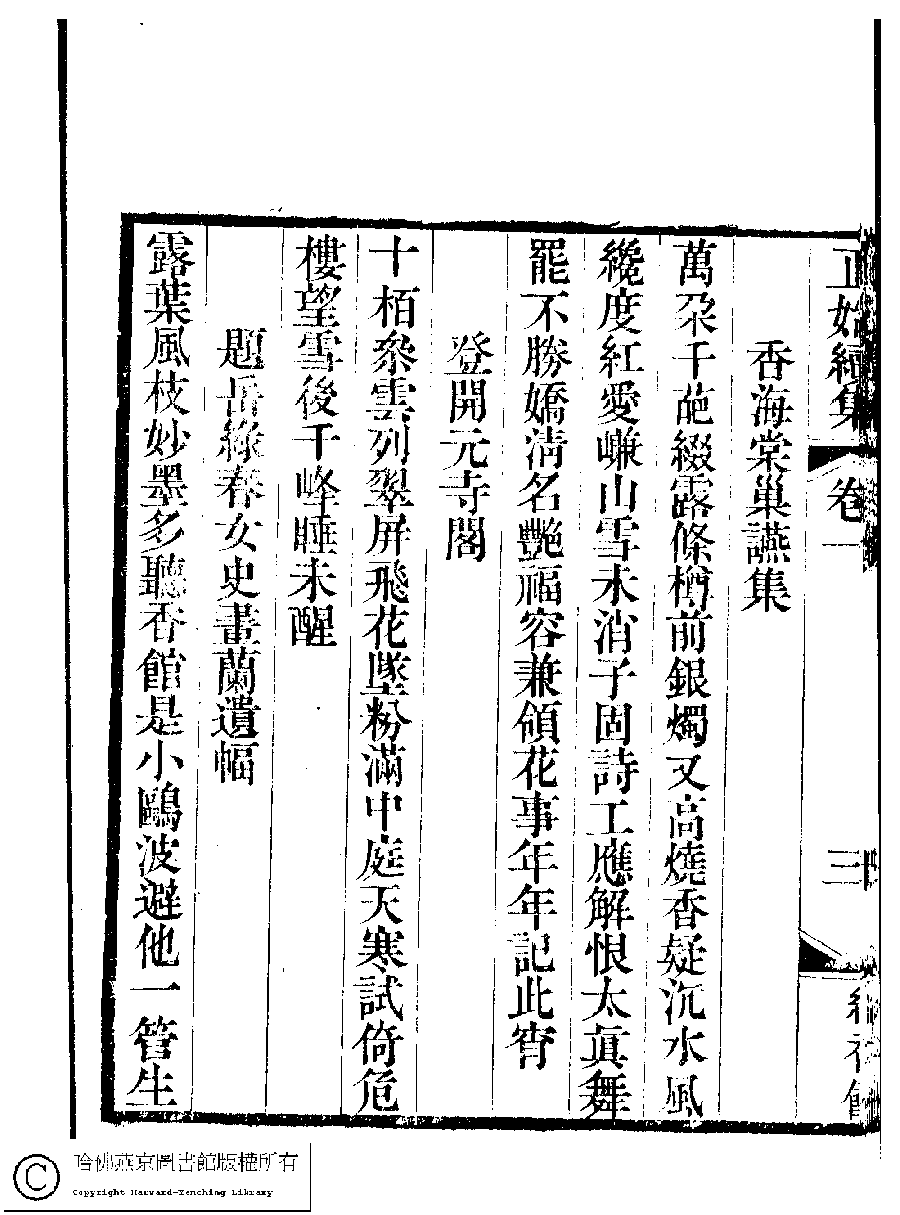 正始續集 卷一 三 紅香館
香海棠巢讌集
萬朶千葩綴露條樽前銀燭又高燒香疑沉水風
纔度紅愛嵰山雪未消子固詩工應解恨太眞舞
罷不勝嬌淸名艷福容兼領花事年年記此宵
登開元寺閣
十栢叅雲列翠屏飛花墜粉滿中庭天寒試倚危
樓望雪後千峰睡未醒
題岳綠春女史畫蘭遺幅
露葉風枝妙墨多聽香館是小鷗波避他一管生
©
哈佛燕京圖書館版權所有
Copyright Harvard-Yenching Library